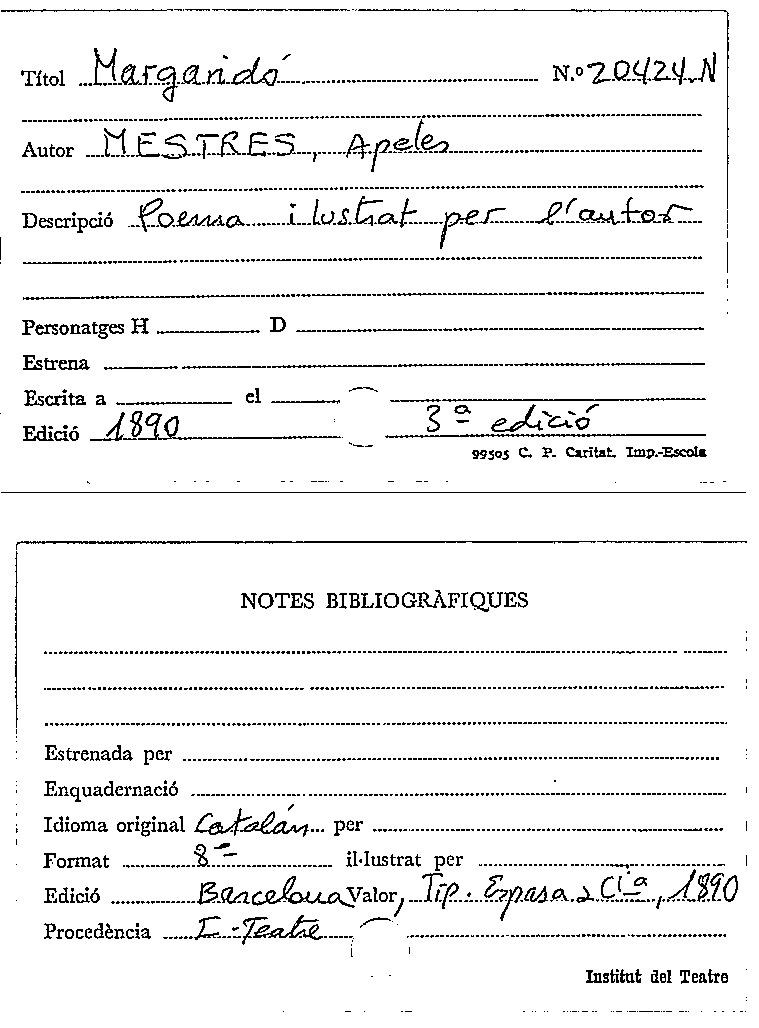 Títol Margaridó N.º 20424-N
Autor MESTRES, Apeles
Descripció Poema ilustrat per l'autor
Personatges H D
Estrena
Escrita a el
Edició 1890 3ª edició
99505 C. P. Caritat. Imp.-Escola
NOTES BIBLIOGRÀFIQUES
Estrenada per
Enquadernació
Idioma original Catalán per
Format 8º il·lustrat per
Edició Barcelona Valor, Tip. Espasa y Cíª, 1890
Procedència I-Teatre
Institut del Teatre